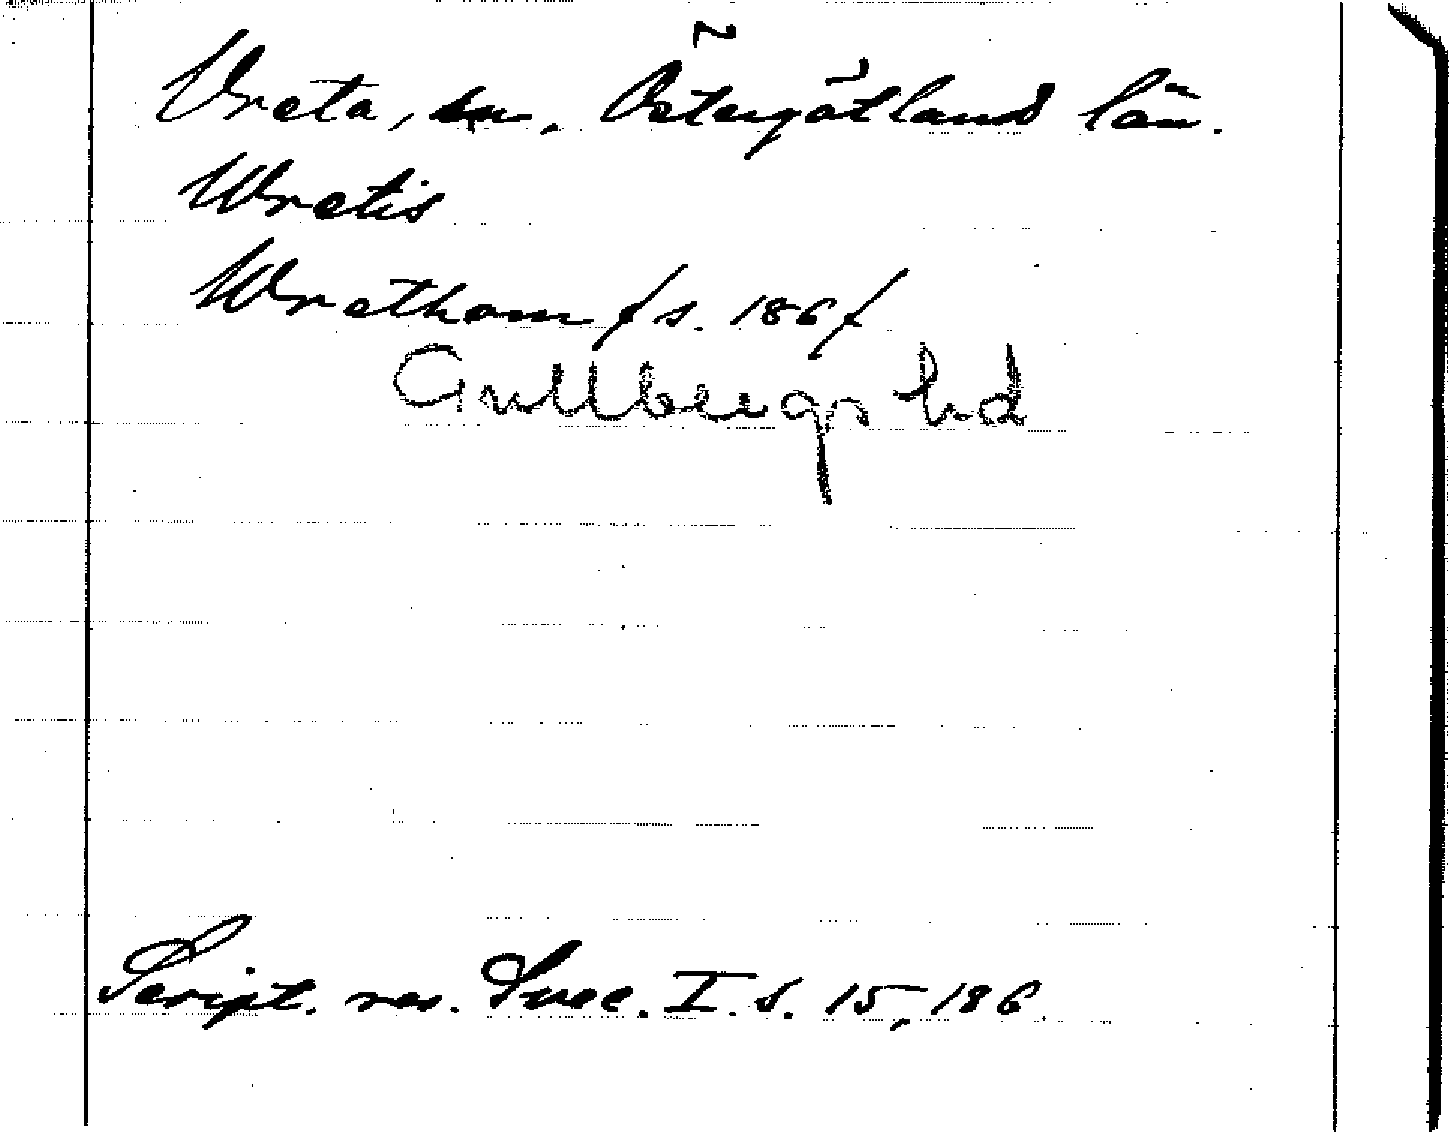 Vreta, sn. Östergötlands län.
Wretis
Wretham /s. 186/
Gullbergs hd
Script. rer. Suec. I. s. 15, 186.